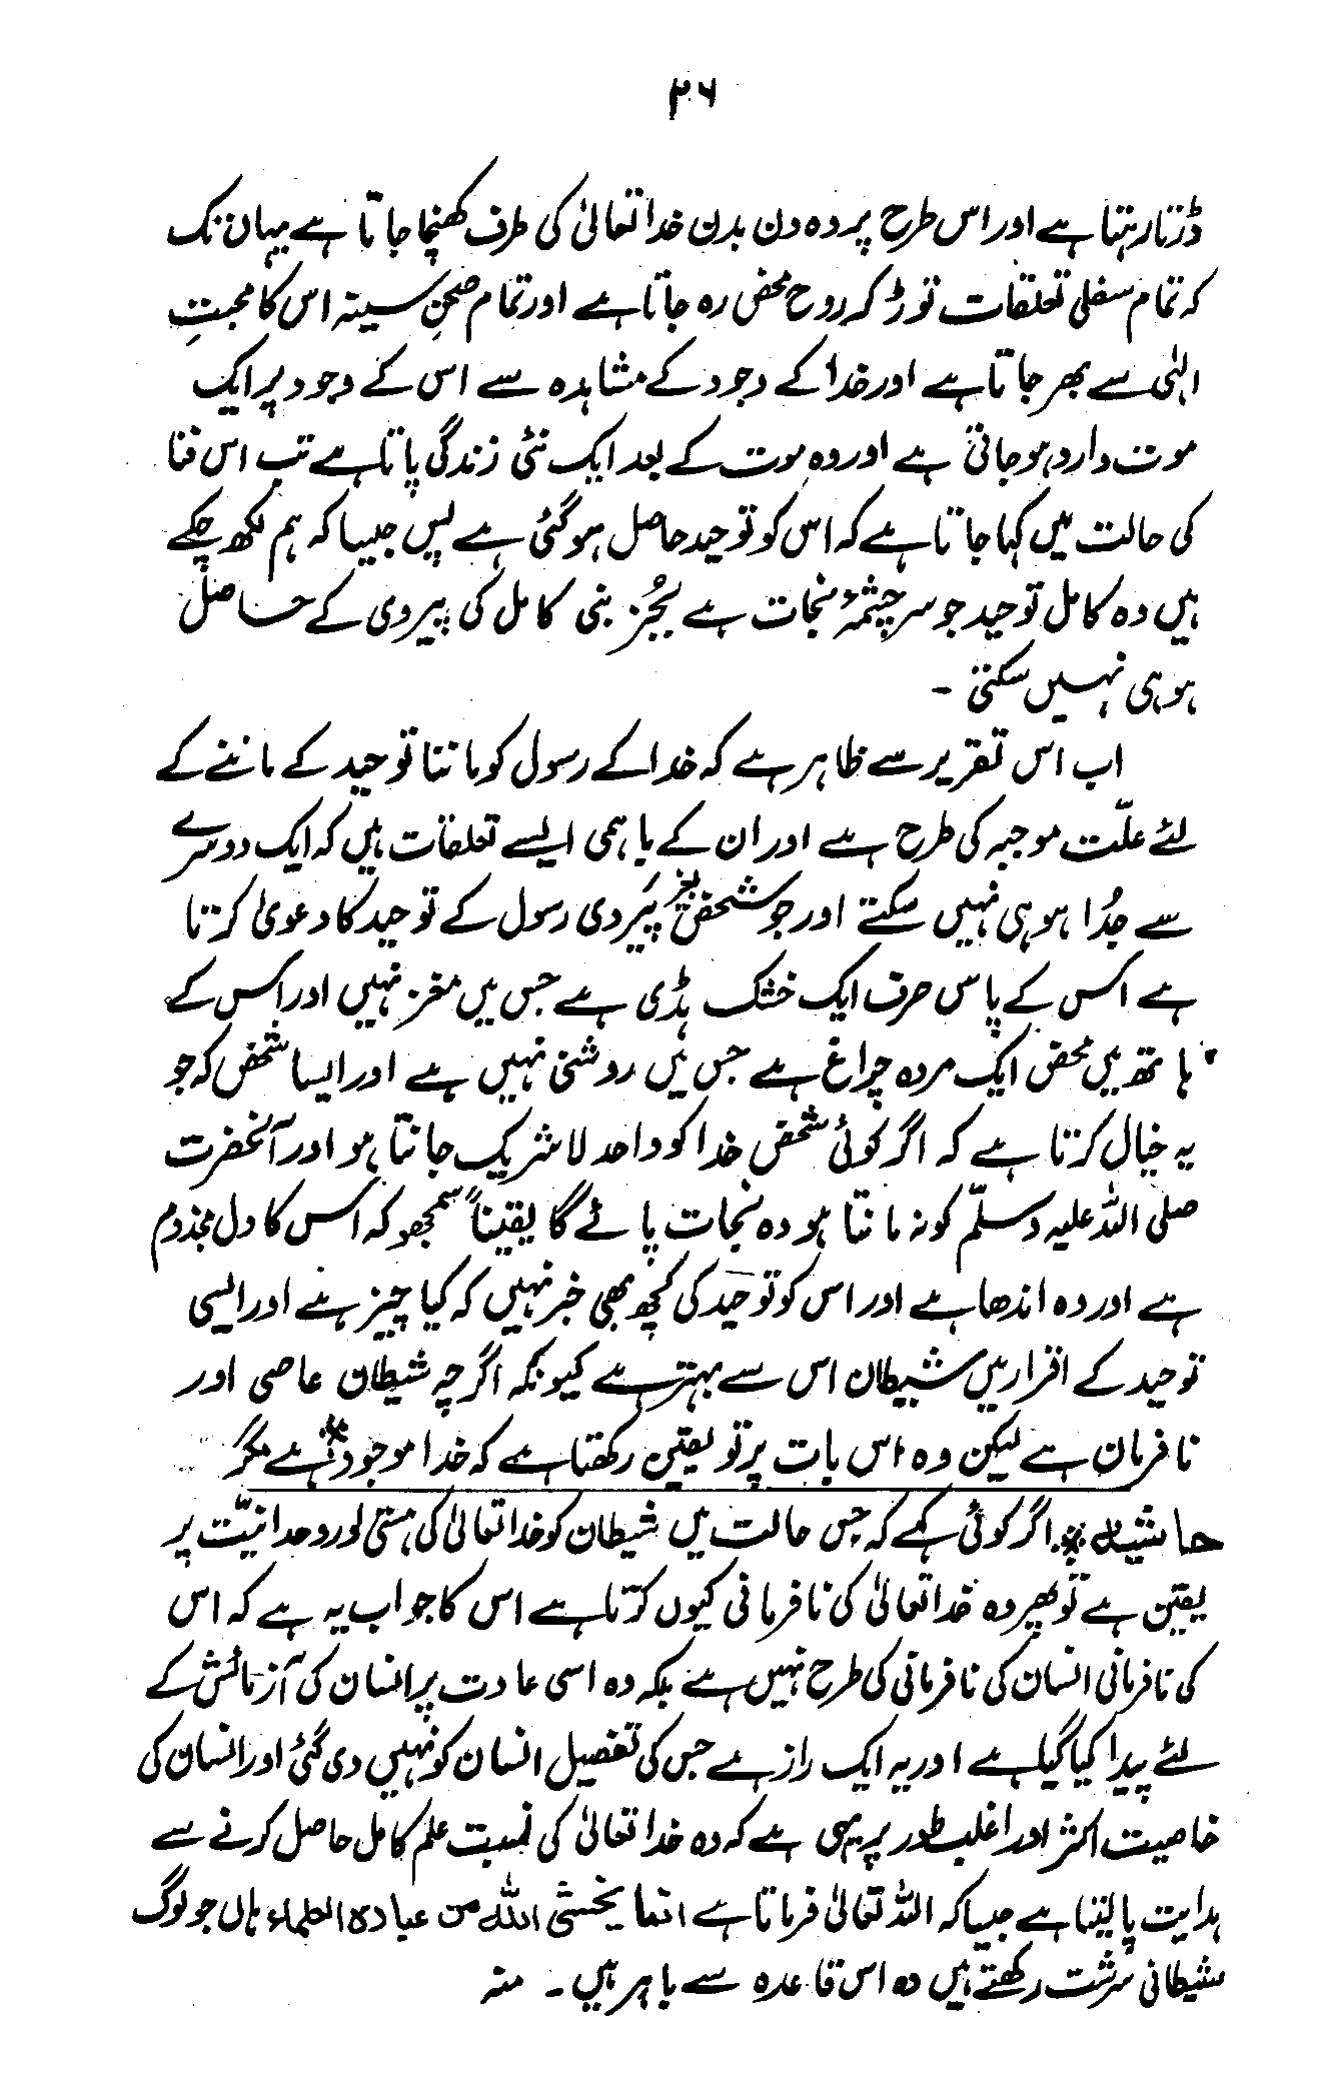 ۲۶
ڈرتا رہتا ہے اور اس طرح پر وہ دن بدن خدا تعالیٰ کی طرف کھینچا جاتا ہے یہاں تک
کہ تمام سفلی تعلقات توڑ کر روح محض رہ جاتا ہے اور تمام صحنِ سینہ اس کا محبتِ
الٰہی سے بھر جاتا ہے اور خدا کے وجود کے مشاہدہ سے اس کے وجود پر ایک
موت وارد ہو جاتی ہے اور وہ موت کے بعد ایک نئی زندگی پاتا ہے تب اس فنا
کی حالت میں کہا جاتا ہے کہ اس کو توحید حاصل ہو گئی ہے پس جیسا کہ ہم لکھ چکے
ہیں وہ کامل توحید جو سرچشمۂ نجات ہے بجُز نبی کامل کی پیروی کے حاصل
ہو ہی نہیں سکتی ۔
اب اس تقریر سے ظاہر ہے کہ خدا کے رسول کو ماننا توحید کے ماننے کے
لئے علّت موجبہ کی طرح ہے اور ان کے باہمی ایسے تعلقات ہیں کہ ایک دوسرے
سے جُدا ہو ہی نہیں سکتے اور جو شخص بغیر پَیروی رسول کے توحید کا دعویٰ کرتا
ہے اس کے پاس صرف ایک خشک ہڈی ہے جس میں مغز نہیں اور اس کے
ہاتھ میں محض ایک مردہ چراغ ہے جس میں روشنی نہیں ہے اور ایسا شخص کہ جو
یہ خیال کرتا ہے کہ اگر کوئی شخص خدا کو واحد لا شریک جانتا ہو اور آنحضرت
صلی اللہ علیہ وسلّم کو نہ مانتا ہو وہ نجات پائے گا یقیناً سمجھو کہ اس کا دل مجذوم
ہے اور وہ اندھا ہے اور اس کو توحید کی کچھ بھی خبر نہیں کہ کیا چیز ہے اور ایسی
توحید کے اقرار میں شیطان اس سے بہتر ہے کیونکہ اگرچہ شیطان عاصی اور
نافرمان ہے لیکن وہ اس بات پر تو یقین رکھتا ہے کہ خدا موجود* ہے مگر
حاشیہ * اگر کوئی کہے کہ جس حالت میں شیطان کو خدا تعالیٰ کی ہستی اور وحدانیّت پر
یقین ہے تو پھر وہ خدا تعالیٰ کی نافرمانی کیوں کرتا ہے اس کا جواب یہ ہے کہ اس
کی نافرمانی انسان کی نافرمانی کی طرح نہیں ہے بلکہ وہ اسی عادت پر انسان کی آزمائش کے
لئے پیدا کیا گیا ہے اور یہ ایک راز ہے جس کی تفصیل انسان کو نہیں دی گئی اور انسان کی
خاصیت اکثر اور اغلب طور پر یہی ہے کہ وہ خدا تعالیٰ کی نسبت علم کامل حاصل کرنے سے
ہدایت پا لیتا ہے جیسا کہ اللہ تعالیٰ فرماتا ہے انما یخشی اللہ من عبادہ العلماء ہاں جو لوگ
شیطانی سرشت رکھتے ہیں وہ اس قاعدہ سے باہر ہیں ۔ منہ